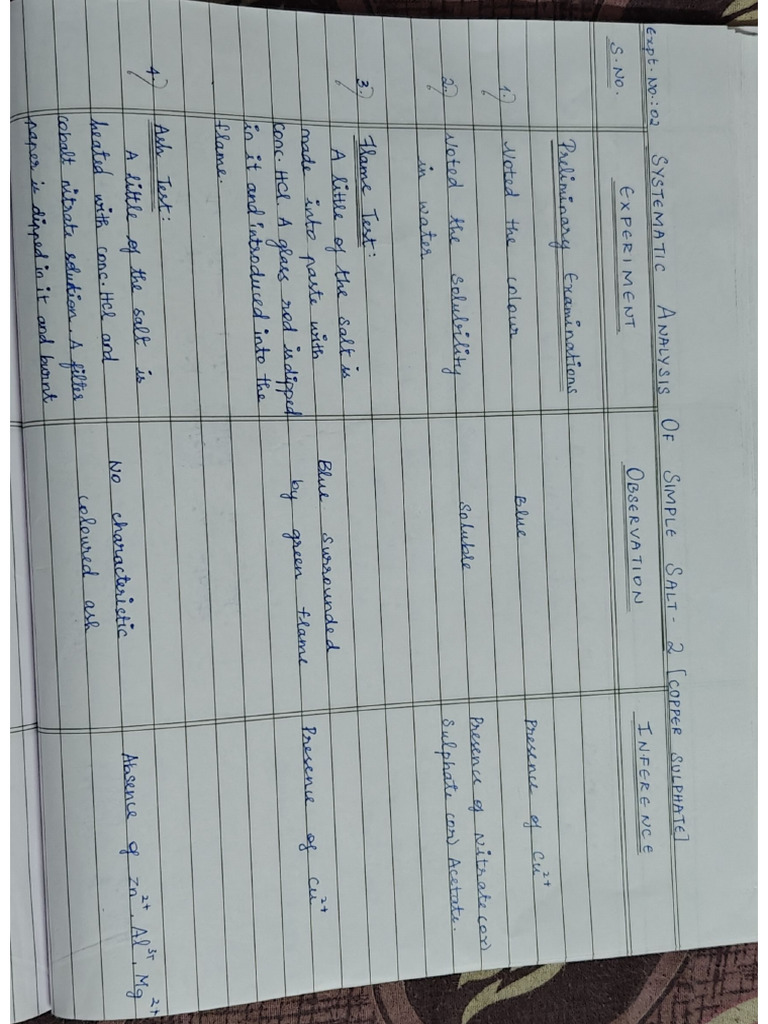 Expt. No.: 02 SYSTEMATIC ANALYSIS OF SIMPLE SALT - 2 [COPPER SULPHATE]
S.NO. EXPERIMENT OBSERVATION INFERENCE
Preliminary Examinations
1.) Noted the colour Blue Presence of Cu²⁺
2.) Noted the solubility Soluble Presence of Nitrate (or)
in water Sulphate (or) Acetate.
3.) Flame Test:
A little of the salt is Blue surrounded Presence of Cu²⁺
made into paste with by green flame
conc. HCl. A glass rod is dipped
in it and introduced into the
flame.
4.) Ash Test:
A little of the salt is No characteristic Absence of Zn²⁺, Al³⁺, Mg²⁺
heated with conc. HCl and coloured ash
cobalt nitrate solution. A filter
paper is dipped in it and burnt